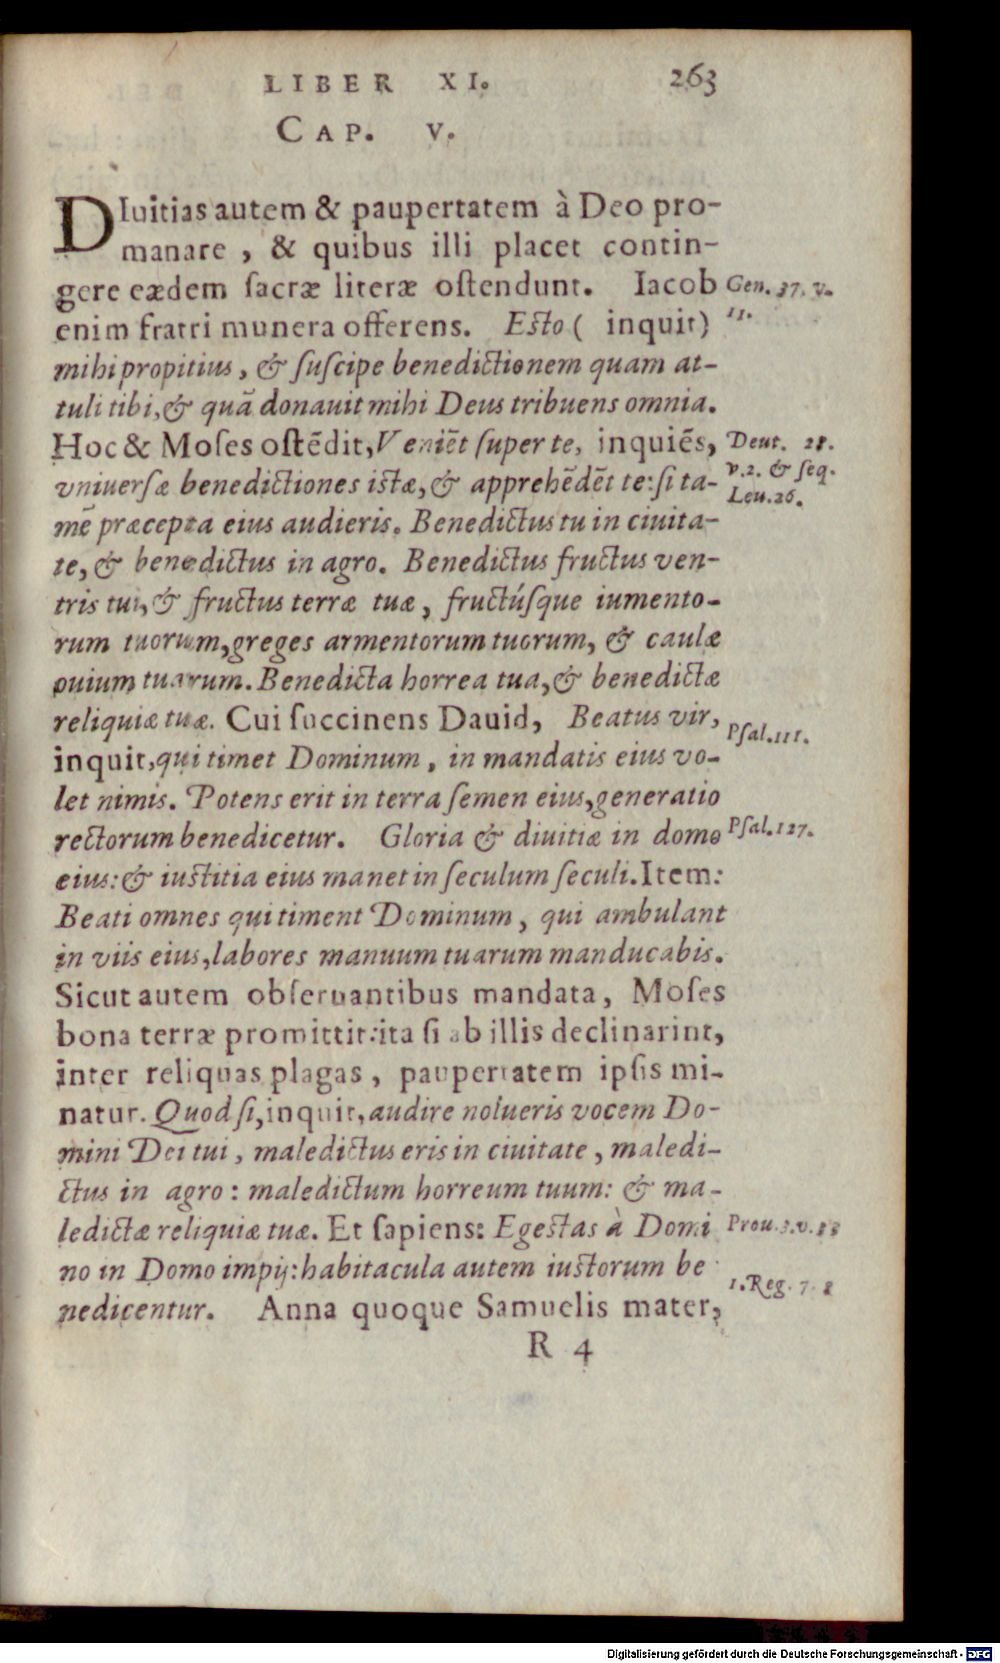 LIBER XI. 263
CAP. V.
DIuitias autem & paupertatem à Deo pro-
manare, & quibus illi placet contin-
gere eædem sacræ literæ ostendunt. Iacob
Gen. 37. v.
11.
enim fratri munera offerens. Esto ( inquit)
mihi propitius, & suscipe benedictionem quam at-
tuli tibi, & quā donauit mihi Deus tribuens omnia.
Hoc & Moses ostēdit, Veniēt super te, inquiēs,
Deut. 28.
v. 2. & seq.
Leu. 26.
vniuersæ benedictiones istæ, & apprehēdēt te: si ta-
mē præcepta eius audieris. Benedictus tu in ciuita-
te, & benedictus in agro. Benedictus fructus ven-
tris tui, & fructus terræ tuæ, fructúsque iumento-
rum tuorum, greges armentorum tuorum, & caulæ
ouium tuarum. Benedicta horrea tua, & benedictæ
reliquiæ tuæ. Cui succinens Dauid, Beatus vir,
Psal. 111.
inquit, qui timet Dominum, in mandatis eius vo-
let nimis. Potens erit in terra semen eius, generatio
rectorum benedicetur. Gloria & diuitiæ in domo
Psal. 127.
eius: & iustitia eius manet in seculum seculi. Item:
Beati omnes qui timent Dominum, qui ambulant
in viis eius, labores manuum tuarum manducabis.
Sicut autem obseruantibus mandata, Moses
bona terræ promittit: ita si ab illis declinarint,
inter reliquas plagas, paupertatem ipsis mi-
natur. Quod si, inquit, audire nolueris vocem Do-
mini Dei tui, maledictus eris in ciuitate, maledi-
ctus in agro: maledictum horreum tuum: & ma-
ledictæ reliquiæ tuæ. Et sapiens: Egestas à Domi
Prou. 3. v. 33
no in Domo impij: habitacula autem iustorum be
1. Reg. 7. 8
nedicentur. Anna quoque Samuelis mater,
R 4
Digitalisierung gefördert durch die Deutsche Forschungsgemeinschaft - DFG